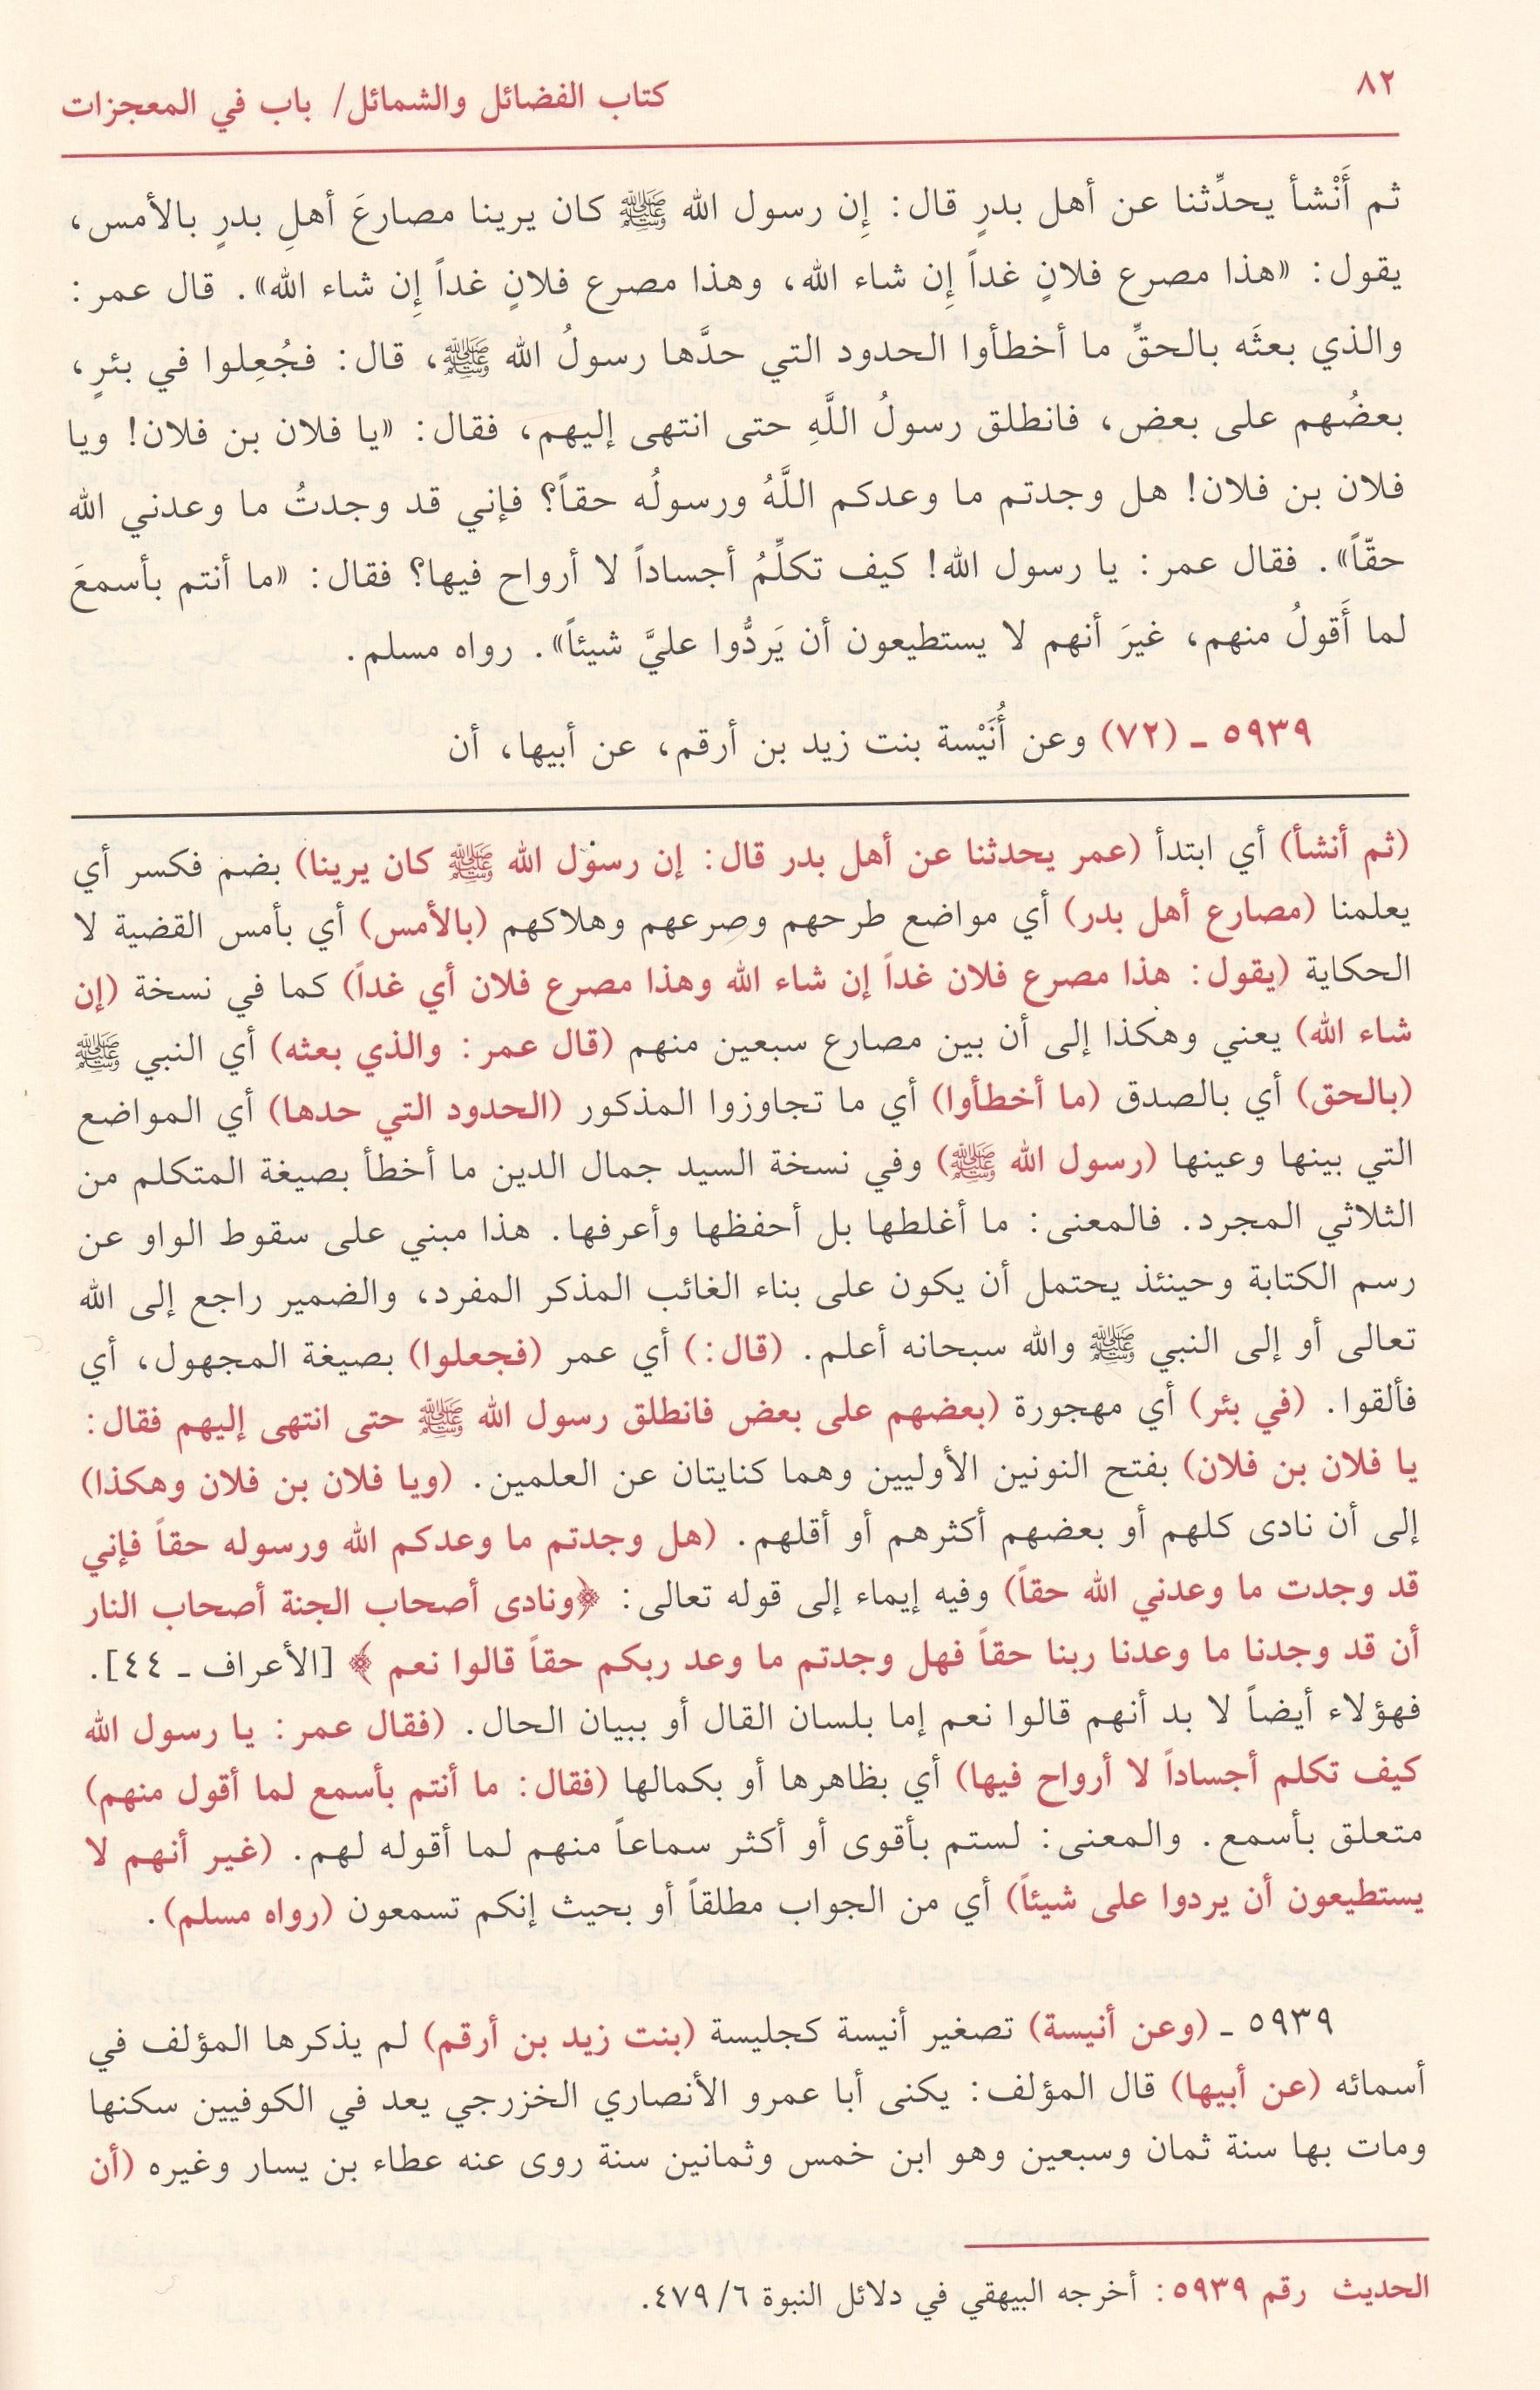 ٨٢
كتاب الفضائل والشمائل/ باب في المعجزات
ثم أَنْشأ يحدِّثنا عن أهل بدرٍ قال: إِن رسول الله ﷺ كان يرينا مصارعَ أهلِ بدرٍ بالأمس،
يقول: «هذا مصرع فلانٍ غداً إِن شاء الله، وهذا مصرع فلانٍ غداً إِن شاء الله». قال عمر:
والذي بعثَه بالحقِّ ما أخطأوا الحدود التي حدَّها رسولُ الله ﷺ، قال: فجُعِلوا في بئرٍ،
بعضُهم على بعض، فانطلق رسولُ اللَّهِ حتى انتهى إليهم، فقال: «يا فلان بن فلان! ويا
فلان بن فلان! هل وجدتم ما وعدكم اللَّهُ ورسولُه حقاً؟ فإني قد وجدتُ ما وعدني الله
حقّاً». فقال عمر: يا رسول الله! كيف تكلِّمُ أجساداً لا أرواح فيها؟ فقال: «ما أنتم بأسمعَ
لما أَقولُ منهم، غيرَ أنهم لا يستطيعون أن يَردُّوا عليَّ شيئاً». رواه مسلم.
٥٩٣٩ ـ (٧٢) وعن أُنَيْسة بنت زيد بن أرقم، عن أبيها، أن
(ثم أنشأ) أي ابتدأ (عمر يحدثنا عن أهل بدر قال: إن رسول الله ﷺ كان يرينا) بضم فكسر أي
يعلمنا (مصارع أهل بدر) أي مواضع طرحهم وصرعهم وهلاكهم (بالأمس) أي بأمس القضية لا
الحكاية (يقول: هذا مصرع فلان غداً إن شاء الله وهذا مصرع فلان أي غداً) كما في نسخة (إن
شاء الله) يعني وهكذا إلى أن بين مصارع سبعين منهم (قال عمر: والذي بعثه) أي النبي ﷺ
(بالحق) أي بالصدق (ما أخطأوا) أي ما تجاوزوا المذكور (الحدود التي حدها) أي المواضع
التي بينها وعينها (رسول الله ﷺ) وفي نسخة السيد جمال الدين ما أخطأ بصيغة المتكلم من
الثلاثي المجرد. فالمعنى: ما أغلطها بل أحفظها وأعرفها. هذا مبني على سقوط الواو عن
رسم الكتابة وحينئذ يحتمل أن يكون على بناء الغائب المذكر المفرد، والضمير راجع إلى الله
تعالى أو إلى النبي ﷺ والله سبحانه أعلم. (قال:) أي عمر (فجعلوا) بصيغة المجهول، أي
فألقوا. (في بئر) أي مهجورة (بعضهم على بعض فانطلق رسول الله ﷺ حتى انتهى إليهم فقال:
يا فلان بن فلان) بفتح النونين الأوليين وهما كنايتان عن العلمين. (ويا فلان بن فلان وهكذا)
إلى أن نادى كلهم أو بعضهم أكثرهم أو أقلهم. (هل وجدتم ما وعدكم الله ورسوله حقاً فإني
قد وجدت ما وعدني الله حقاً) وفيه إيماء إلى قوله تعالى: ﴿ونادى أصحاب الجنة أصحاب النار
أن قد وجدنا ما وعدنا ربنا حقاً فهل وجدتم ما وعد ربكم حقاً قالوا نعم ﴾ [الأعراف ـ ٤٤].
فهؤلاء أيضاً لا بد أنهم قالوا نعم إما بلسان القال أو ببيان الحال. (فقال عمر: يا رسول الله
كيف تكلم أجساداً لا أرواح فيها) أي بظاهرها أو بكمالها (فقال: ما أنتم بأسمع لما أقول منهم)
متعلق بأسمع. والمعنى: لستم بأقوى أو أكثر سماعاً منهم لما أقوله لهم. (غير أنهم لا
يستطيعون أن يردوا على شيئاً) أي من الجواب مطلقاً أو بحيث إنكم تسمعون (رواه مسلم).
٥٩٣٩ ـ (وعن أنيسة) تصغير أنيسة كجليسة (بنت زيد بن أرقم) لم يذكرها المؤلف في
أسمائه (عن أبيها) قال المؤلف: يكنى أبا عمرو الأنصاري الخزرجي يعد في الكوفيين سكنها
ومات بها سنة ثمان وسبعين وهو ابن خمس وثمانين سنة روى عنه عطاء بن يسار وغيره (أن
الحديث رقم ٥٩٣٩: أخرجه البيهقي في دلائل النبوة ٦/ ٤٧٩.